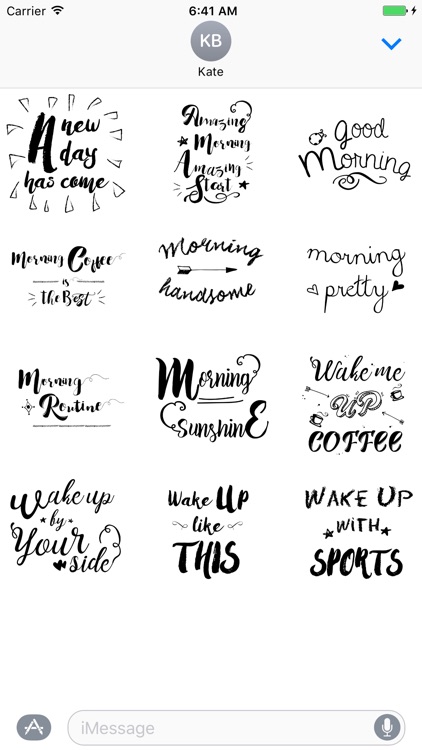 Carrier 6:41 AM
KB
Kate
A new day
has come
Amazing
Morning
Amazing
Start
good
Morning
Morning Coffee
is
the Best
Morning
handsome
morning
pretty
Morning
Routine
Morning
SunshinE
Wake me
UP
COFFEE
Wake up
by
Your
side
Wake UP
like
THIS
WAKE UP
WITH
SPORTS
iMessage